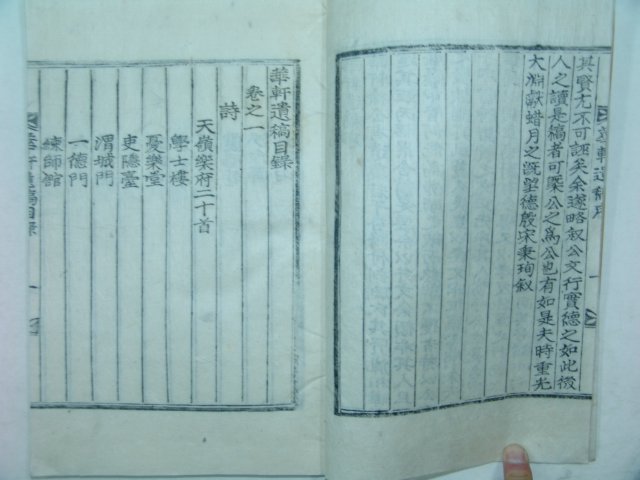 其賢尤不可誣矣余遂略叙公文行實德之如此後
人之讀是稿者可槩公之爲公也有如是夫時重光
大淵獻蜡月之旣望德殷宋秉珣叙
華軒遺稿目錄
卷之一
詩
天嶺樂府二十首
學士樓
憂樂堂
吏隱臺
渭城門
一德門
練師館